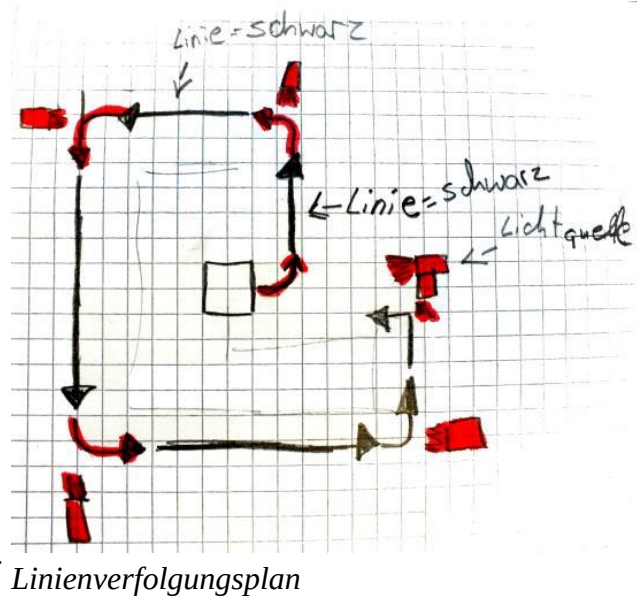 Linie = schwarz
Linie = schwarz
Lichtquelle
Linienverfolgungsplan